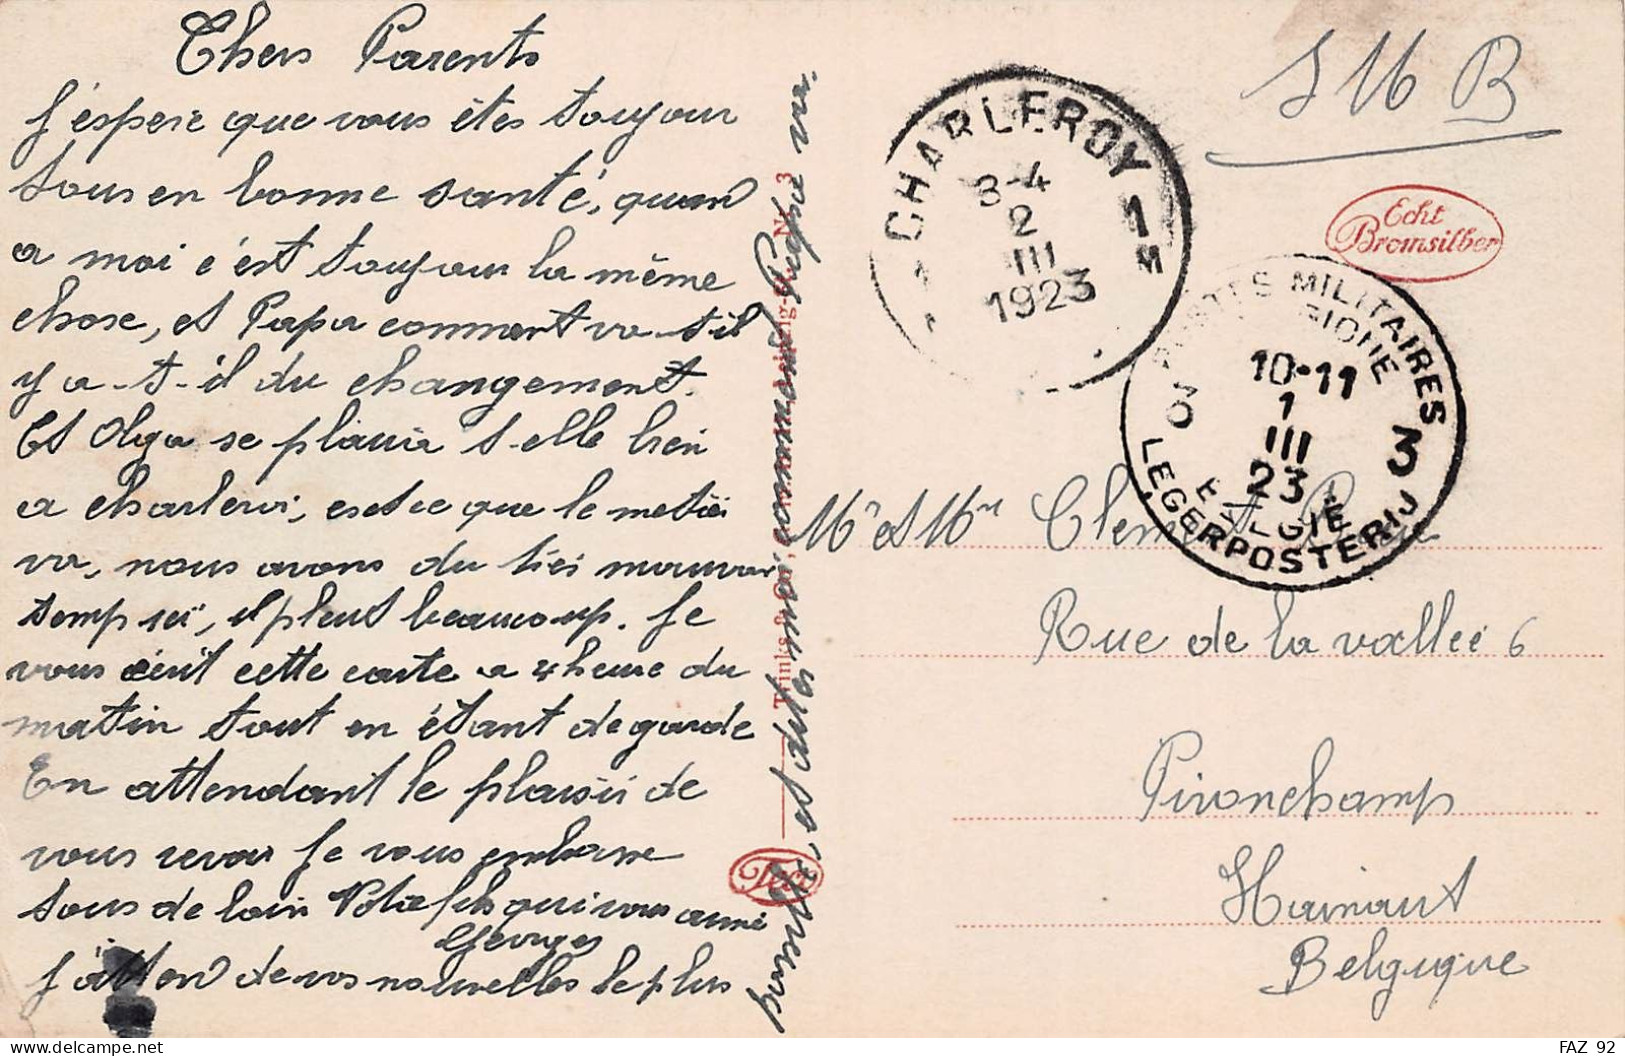 Chers Parents
J'éspere que vous êtes toujour
tous en bonne santé, quand
a moi c'est toujour la même
chose, et Papa comment va-t-il
y a-t-il du changement.
Et Olga se plaira t-elle bien
a charleroi, est ce que le metiér
va, nous avons du tres mauvai
temp ici, il pleut beaucoup. Je
vous écrit cette carte a 4 heure du
matin tout en étant de garde
En attendant le plaisir de
vous revoir Je vous embrasse
tous de loin Vote fils qui vous aime
Georges
J'atten de vos nouvelles le plus
vite, et dites moi comment Papa va
Trinks & Co., Leipzig Nr. 3
Trico
S M B
CHARLEROY
1 1
M
3-4
2
III
1923
Echt
Bromsilber
POSTES MILITAIRES
BELGIQUE
10-11
1
III
23
3 3
BELGIË
LEGERPOSTERIJ
Mr et Mme Clement
Rue de la vallée 6
Pironchamp
Hainaut
Belgique
FAZ 92